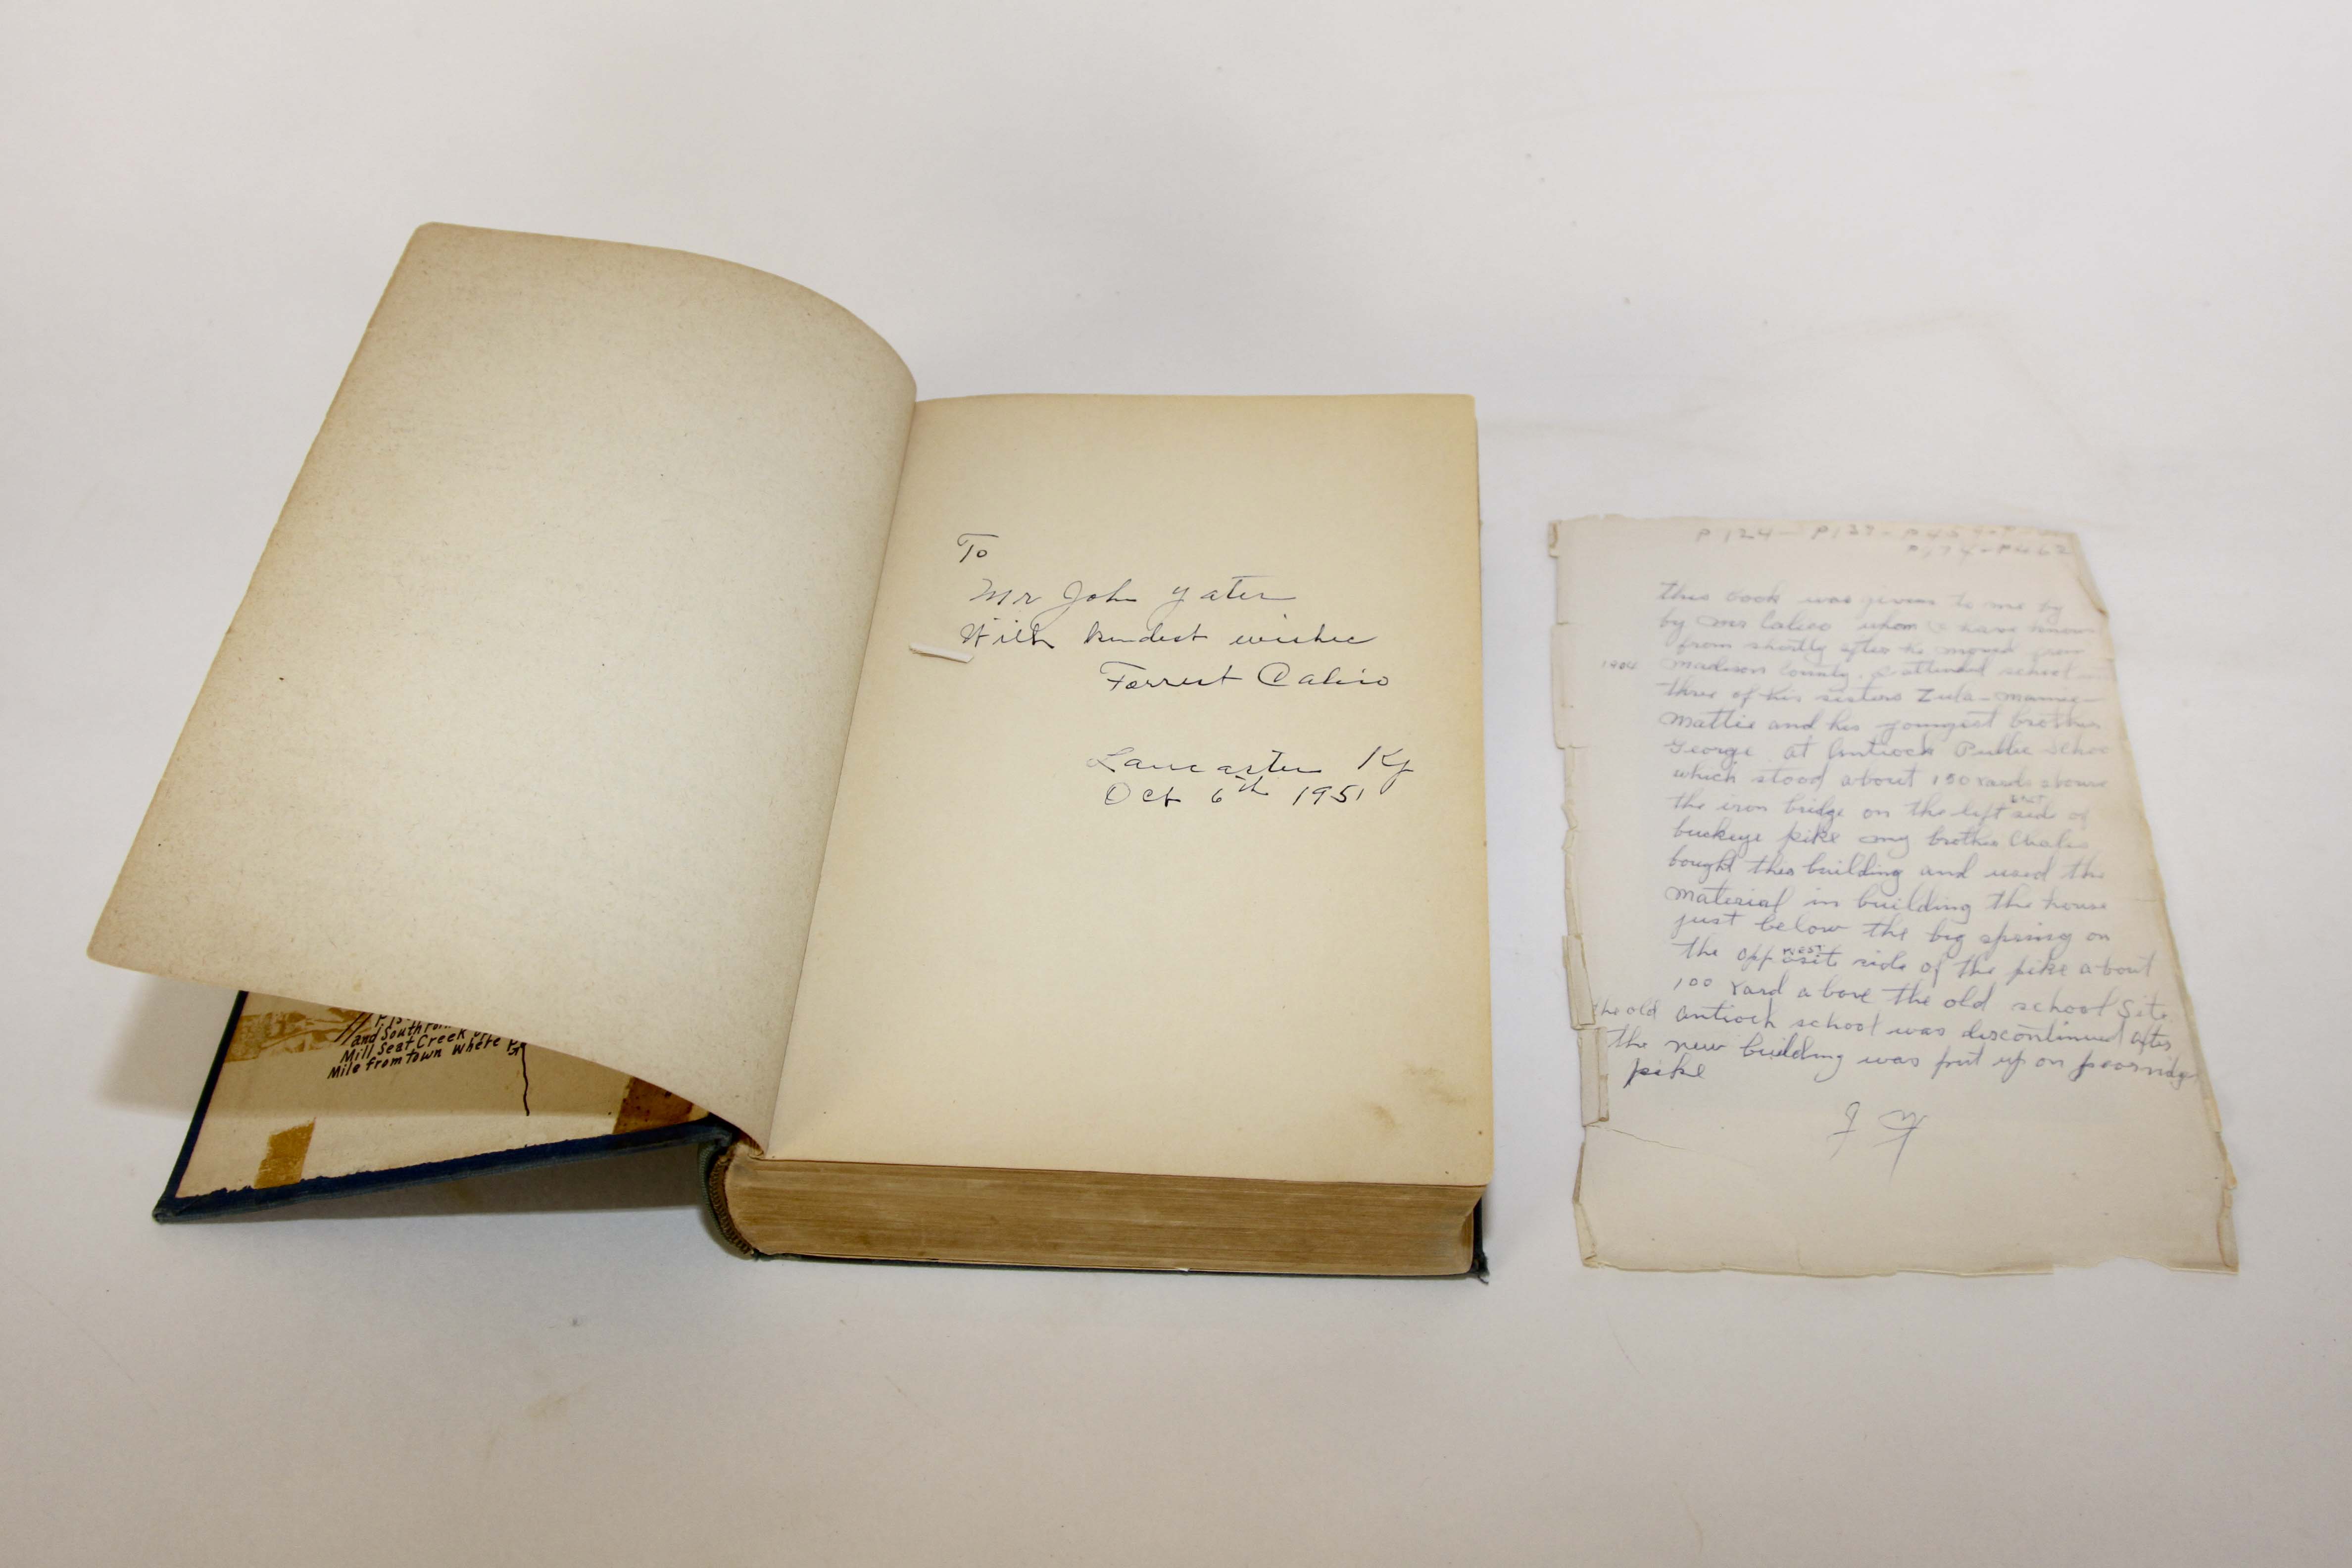 To
Mr John Yater
With kindest wishes
Forrest Calico
Lancaster Ky
Oct 6th 1951
and South
Mill Seat Creek
Mile from Town where
P124 - P132 -
P462
this book was given to me by
by Mr Calico whom I have known
from shortly after he moved from
1904 Madison County. I attended school
three of his sisters Zula - Mamie -
Mattie and his youngest brother
George at Antioch Public School
which stood about 150 yards above
the iron bridge on the left east side of
buckeye pike my brother
bought this building and used the
material in building the house
just below the big spring on
the opposit west side of the pike about
100 yard above the old school Site
the old antioch school was discontinued after
the new building was put up on poorridge
pike
J Y